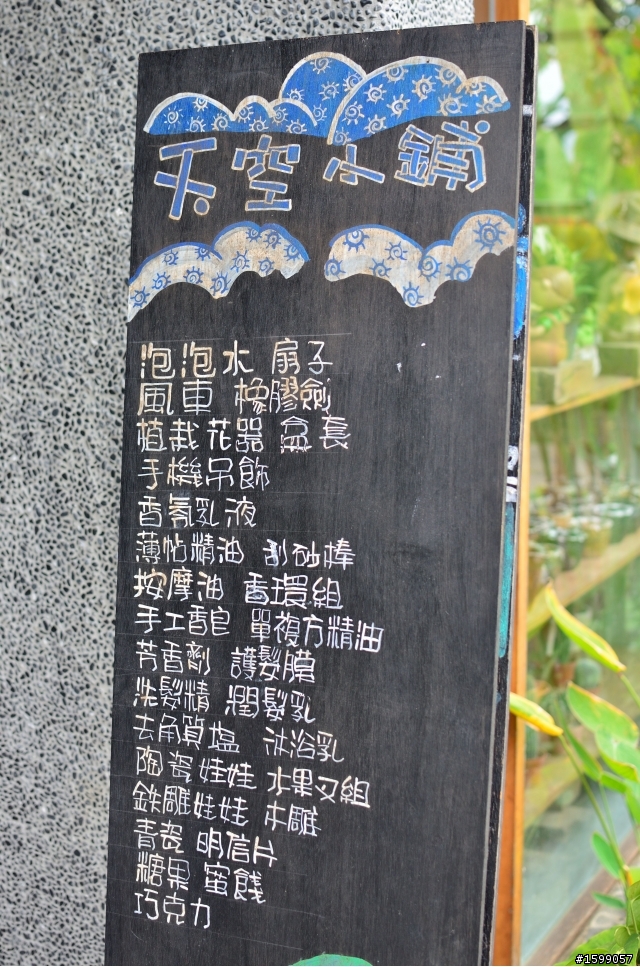 天空小鋪
泡泡水 扇子
風車 橡膠劍
植栽花器 盆套
手機吊飾
香氛乳液
薄帖精油 刮砂棒
按摩油 香環組
手工香皂 單複方精油
芳香劑 護髮膜
洗髮精 潤髮乳
去角質塩 沐浴乳
陶瓷娃娃 水果叉組
鉄雕娃娃 木雕
青瓷 明信片
糖果 蜜餞
巧克力
#1599057